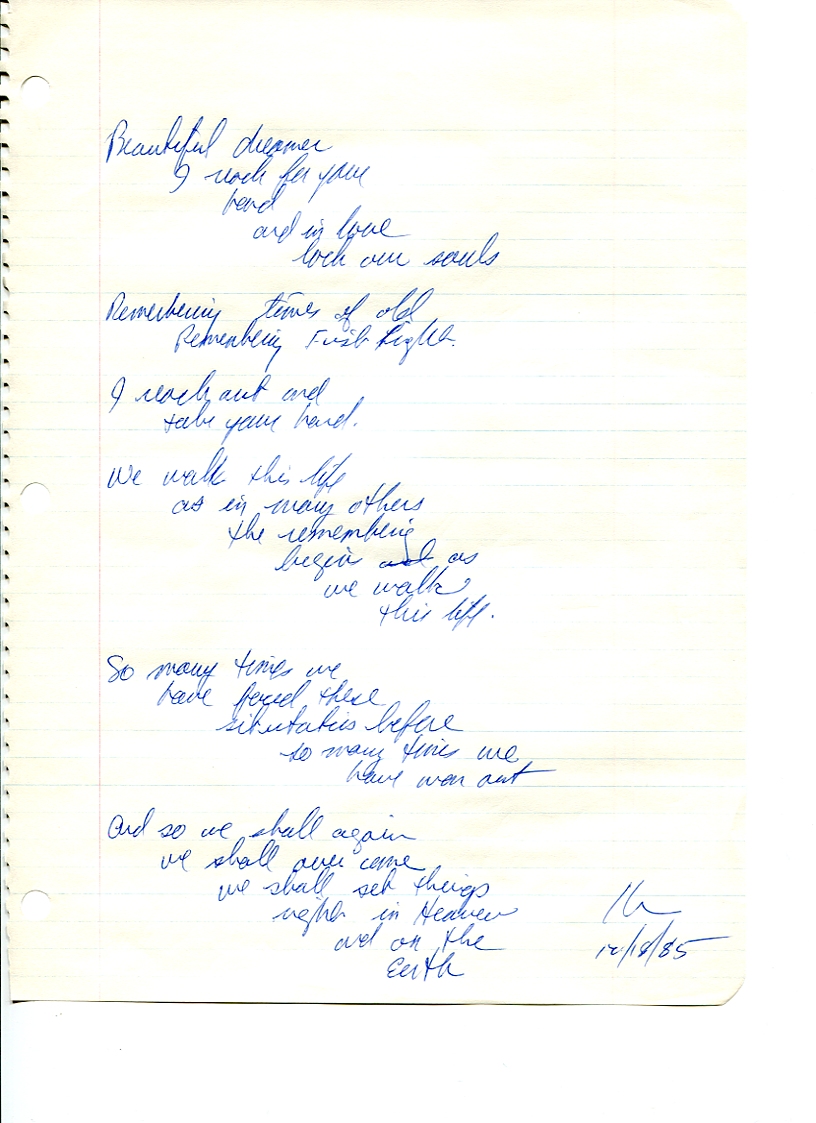 Beautiful dreamer
I reach for your
hand
and in love
lock our souls
Remembering times of old
Remembering First Light.
I reach out and
take your hand.
We walk this life
as in many others
the remembering
begins as
we walk
this life.
So many times we
have faced these
before
so many times we
have won out
And so we shall again
we shall over come
we shall set things
in Heaven
and on the
Earth
/18/85